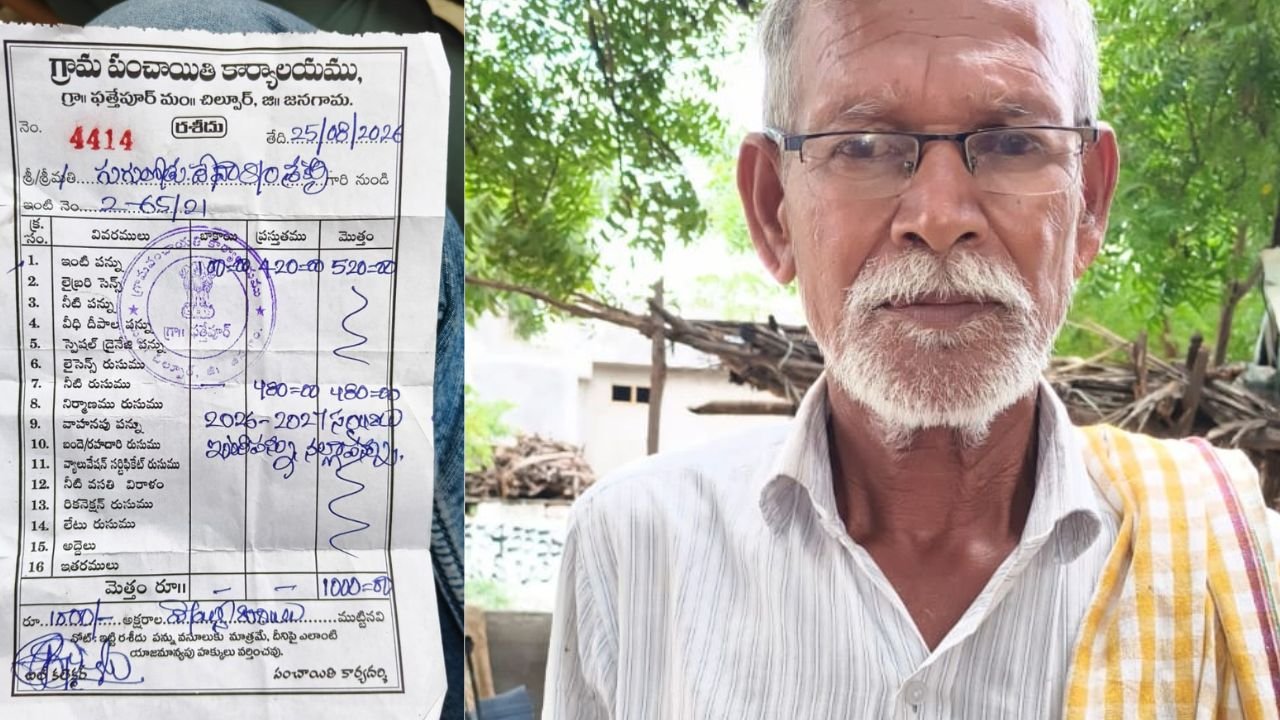 గ్రామ పంచాయితి కార్యాలయము,
గ్రా॥ ఫత్తేపూర్ మం॥ చిల్పూర్, జి॥ జనగామ.
నెం. 4414 రశీదు తేది. 25/08/2026
శ్రీ/శ్రీమతి గారి నుండి
ఇంటి నెం. 2-65/21
క్ర. సం. వివరములు బాకాయి ప్రస్తుతము మొత్తం
1. ఇంటి పన్ను 100=00 420=00 520=00
2. లైబ్రరి సెస్స్
3. నీటి పన్ను
4. వీధి దీపాల పన్ను
5. స్పెషల్ డ్రైనేజి పన్ను
6. లైసెన్స్ రుసుము
7. నీటి రుసుము — 480=00 480=00
8. నిర్మాణము రుసుము
9. వాహనపు పన్ను 2026-2027
10. బందె/రహదారి రుసుము
11. వ్యాలువేషన్ సర్టిఫికేట్ రుసుము
12. నీటి వసతి విరాళం
13. రికనెక్షన్ రుసుము
14. లేటు రుసుము
15. అద్దెలు
16 ఇతరములు
మెత్తం రూ॥ — — 1000=00
రూ. 1000/- అక్షరాల ముట్టినవి
నోట్: ఇట్టి రశీదు పన్ను వసూలుకు మాత్రమే, దీనిపై ఎలాంటి
యాజమాన్యపు హక్కులు వర్తించవు.
బిల్ కలెక్టర్ పంచాయితి కార్యదర్శి